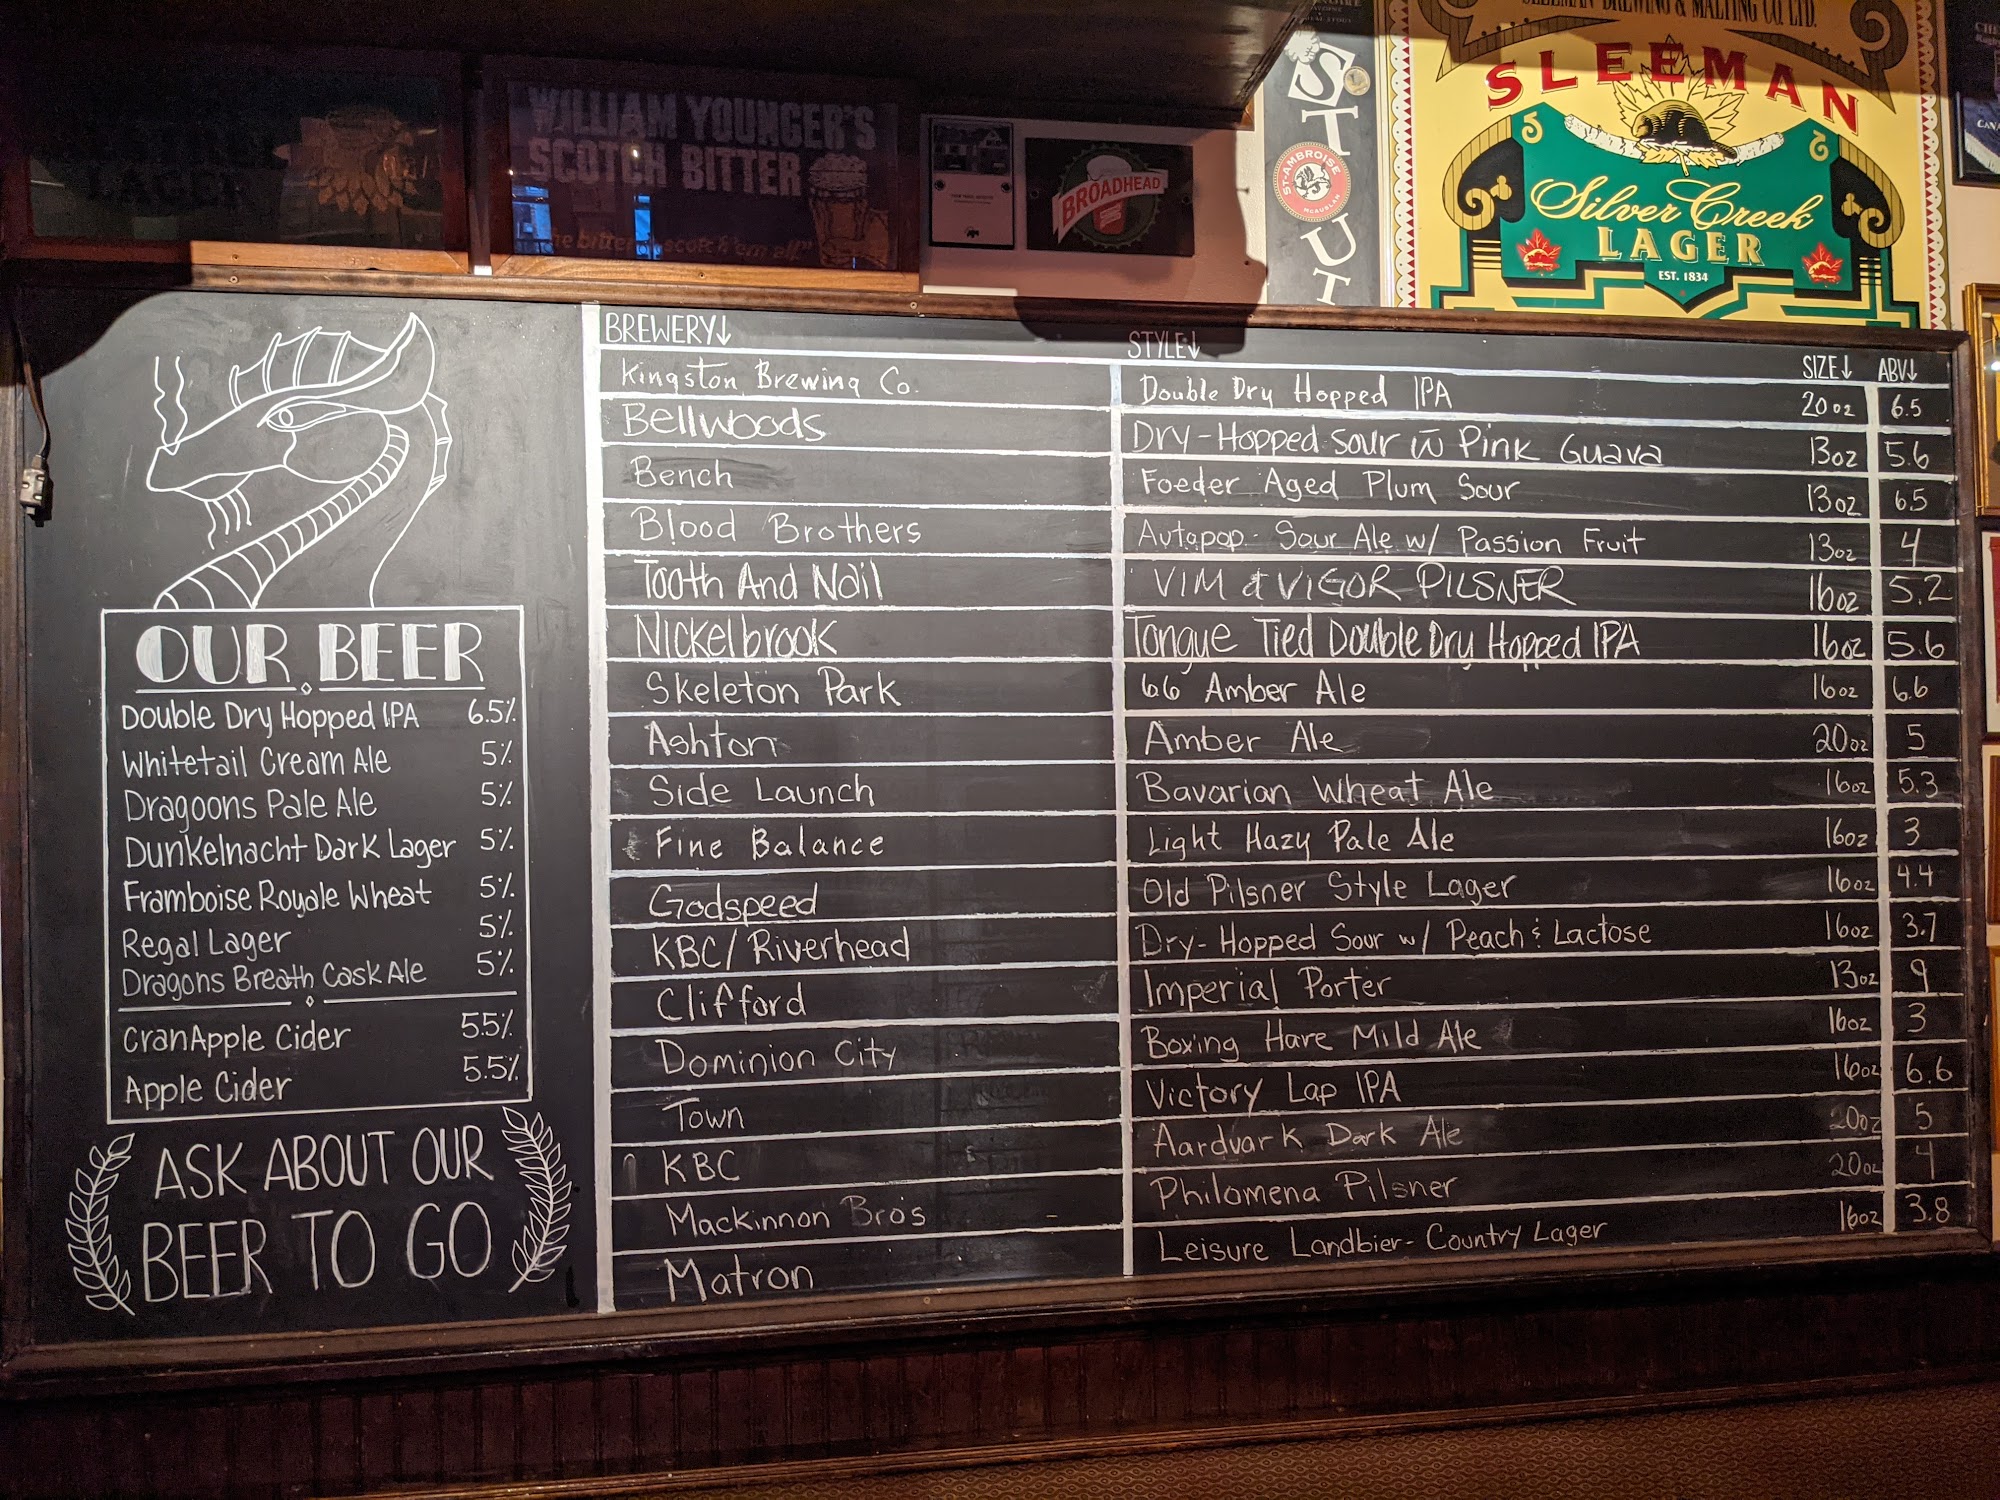 SLEEMAN BREWING & MALTING CO. LTD.
SLEEMAN
Silver Creek
LAGER
EST. 1834
STOUT
ST-AMBROISE
McAUSLAN
LAGER
WILLIAM YOUNGER'S
SCOTCH BITTER
BROADHEAD
OUR BEER
Double Dry Hopped IPA 6.5%
Whitetail Cream Ale 5%
Dragoons Pale Ale 5%
Dunkelnacht Dark Lager 5%
Framboise Royale Wheat 5%
Regal Lager 5%
Dragons Breath Cask Ale 5%
CranApple Cider 5.5%
Apple Cider 5.5%
ASK ABOUT OUR
BEER TO GO
BREWERY↓ STYLE↓ SIZE↓ ABV↓
Kingston Brewing Co. Double Dry Hopped IPA 20oz 6.5
Bellwoods Dry-Hopped Sour w̄ Pink Guava 13oz 5.6
Bench Foeder Aged Plum Sour 13oz 6.5
Blood Brothers Autapop - Sour Ale w/ Passion Fruit 13oz 4
Tooth And Nail VIM & VIGOR PILSNER 16oz 5.2
Nickelbrook Tongue Tied Double Dry Hopped IPA 16oz 5.6
Skeleton Park 6.6 Amber Ale 16oz 6.6
Ashton Amber Ale 20oz 5
Side Launch Bavarian Wheat Ale 16oz 5.3
Fine Balance Light Hazy Pale Ale 16oz 3
Godspeed Old Pilsner Style Lager 16oz 4.4
KBC/Riverhead Dry-Hopped Sour w/ Peach & Lactose 16oz 3.7
Clifford Imperial Porter 13oz 9
Dominion City Boxing Hare Mild Ale 16oz 3
Town Victory Lap IPA 16oz 6.6
KBC Aardvark Dark Ale 20oz 5
Mackinnon Bro's Philomena Pilsner 20oz 4
Matron Leisure Landbier - Country Lager 16oz 3.8